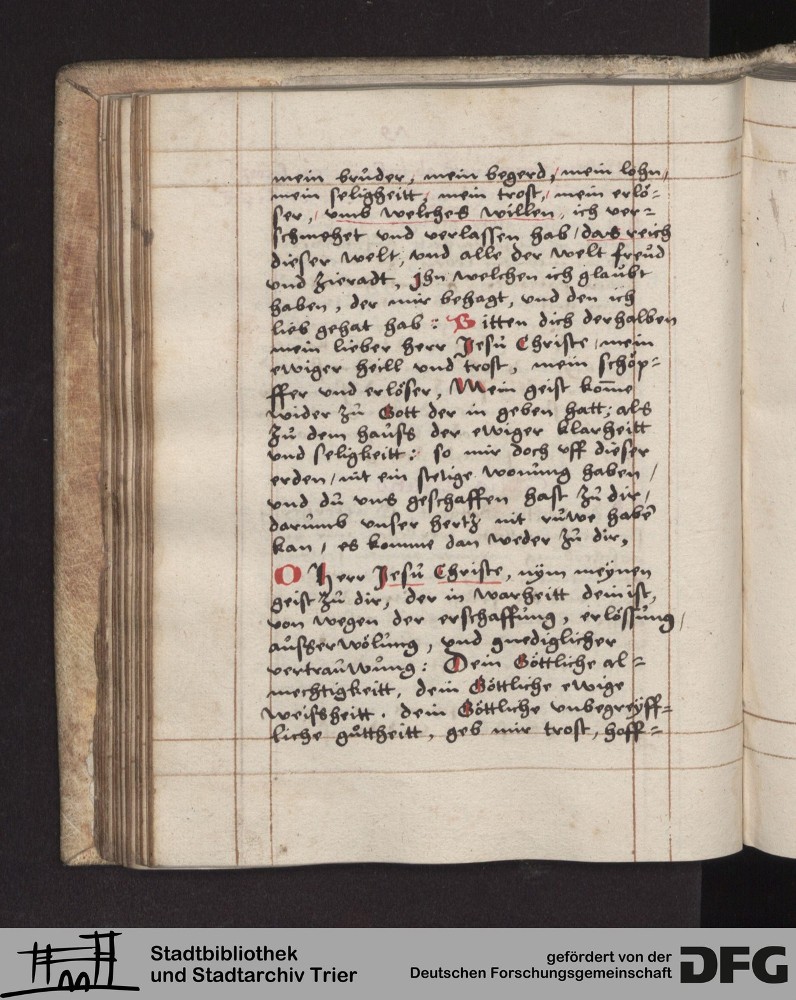 mein brůder, mein begerd, mein lohn,
mein seligheitt, mein trost, mein erlö=
ser, vmb welches willen, ich ver=
schmehet vnd verlassen hab, das reich
dieser welt, vnd alle der welt freůd
vnd zieradt, Jhn welchen ich glaůbt
haben, der mir behagt, vnd den ich
lieb gehat hab: Bitten dich derhalben
mein lieber herr Jesů Christe, mein
ewiger heill vnd trost, mein schöp=
ffer vnd erlöser, Mein geist kom̄e
wider zů Gott der in geben hatt; als
zů dem haůss der ewiger klarheitt
vnd seligkeitt: so mir doch vff dieser
erden, nit ein stetige wonůng haben,
vnd dů vns geschaffen hast zů dir,
darůmb vnser hertz nit růwe habē
kan, es komme dan weder zů dir,
O Herr Jesů Christe, nÿm meÿnen
geist zů dir, der in warheitt dein ist,
von wegen der erschaffůng, erlössůng,
aůsserwölůng, vnd gnediglicher
vertraůwůng: Dein Göttliche al=
mechtigkeitt, dein Göttliche ewige
weissheitt. dein Göttliche vnbegreÿff=
liche gůttheitt, geb mir trost, hoff=
Stadtbibliothek
und Stadtarchiv Trier
gefördert von der
Deutschen Forschungsgemeinschaft
DFG